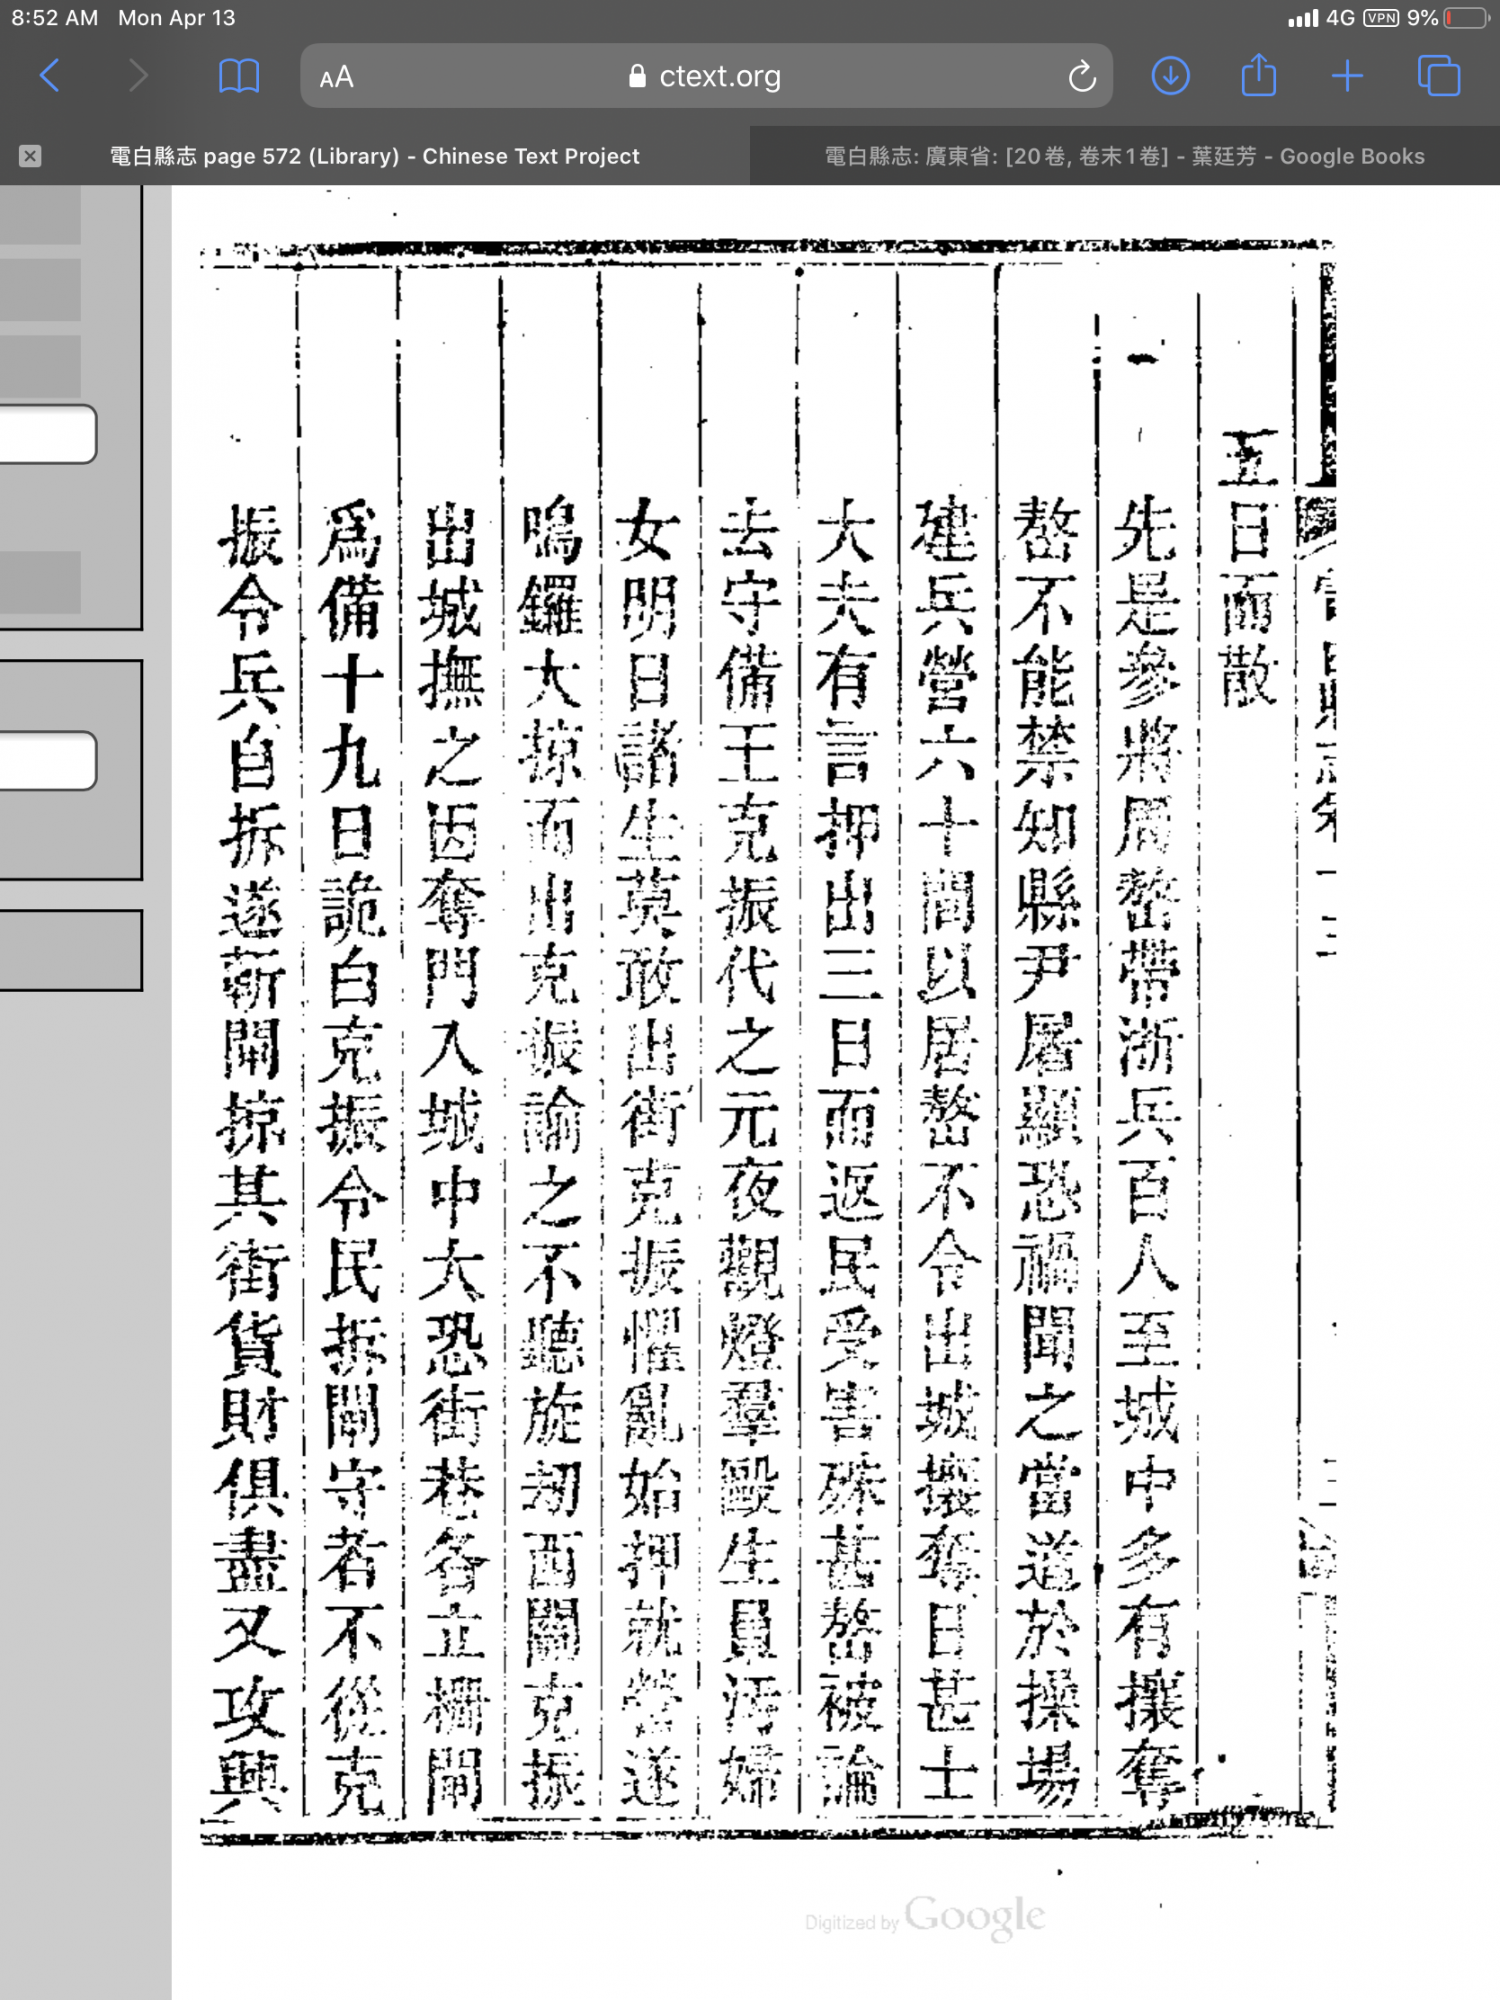 8:52 AM Mon Apr 13
4G VPN 9%
AA ctext.org
電白縣志 page 572 (Library) - Chinese Text Project
電白縣志: 廣東省: [20卷, 卷末1卷] - 葉廷芳 - Google Books
五日而散
先是參將周嶅帶浙兵百人至城中多有攘奪
嶅不能禁知縣尹屠顯恐禍聞之當道於操場
建兵營六十間以居嶅不令出城攘奪日甚士
大夫有言押出三日而返民受害殊甚嶅被論
去守備王克振代之元夜觀燈羣毆生員污婦
女明日諸生莫敢出街克振懼亂始押就營遂
鳴鑼大掠而出克振諭之不聽旋刧西關克振
出城撫之因奪門入城中大恐街巷各立柵閘
爲備十九日詭白克振令民拆閘守者不從克
振令兵自拆遂斬閘掠其街貨財俱盡又攻興
Digitized by Google